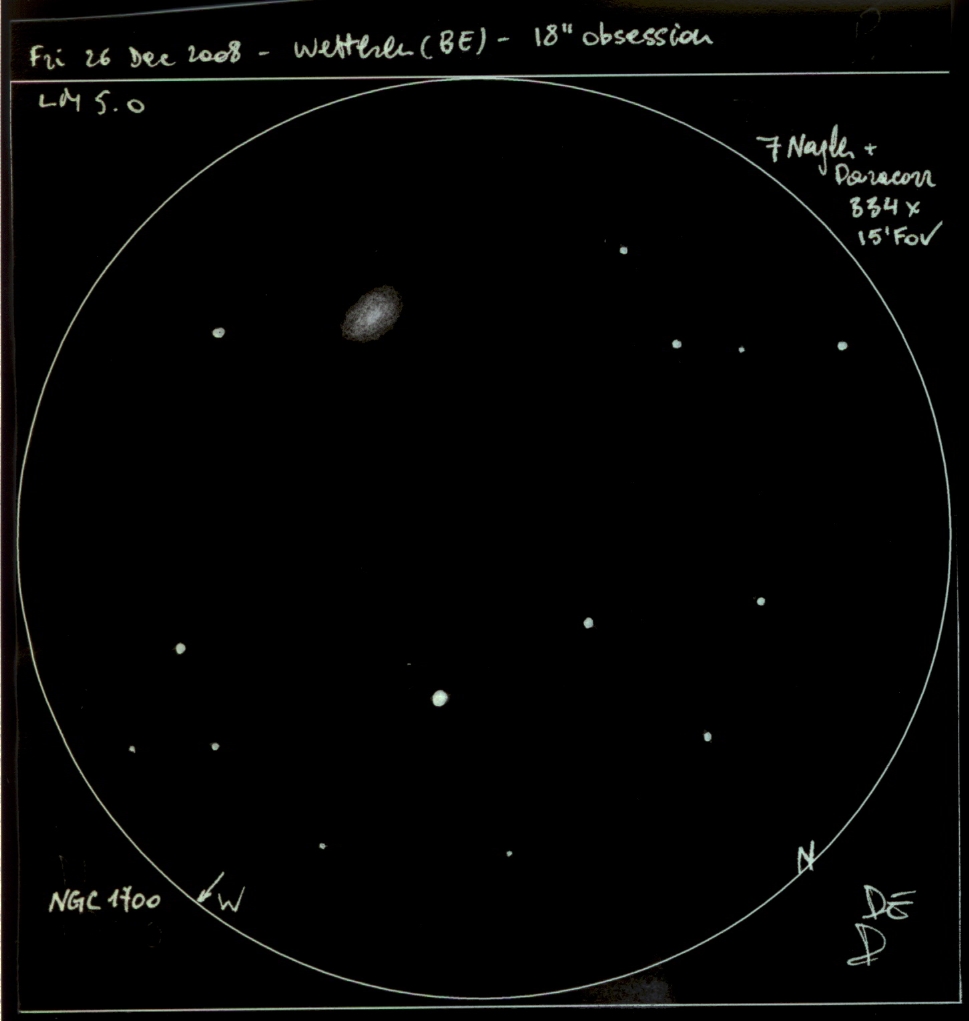 Fri 26 Dec 2008 - Wetteren (BE) - 18" obsession
LM 5.0
7 Nagler +
Paracorr
334x
15' FOV
N
NGC 1700
W
DE
D